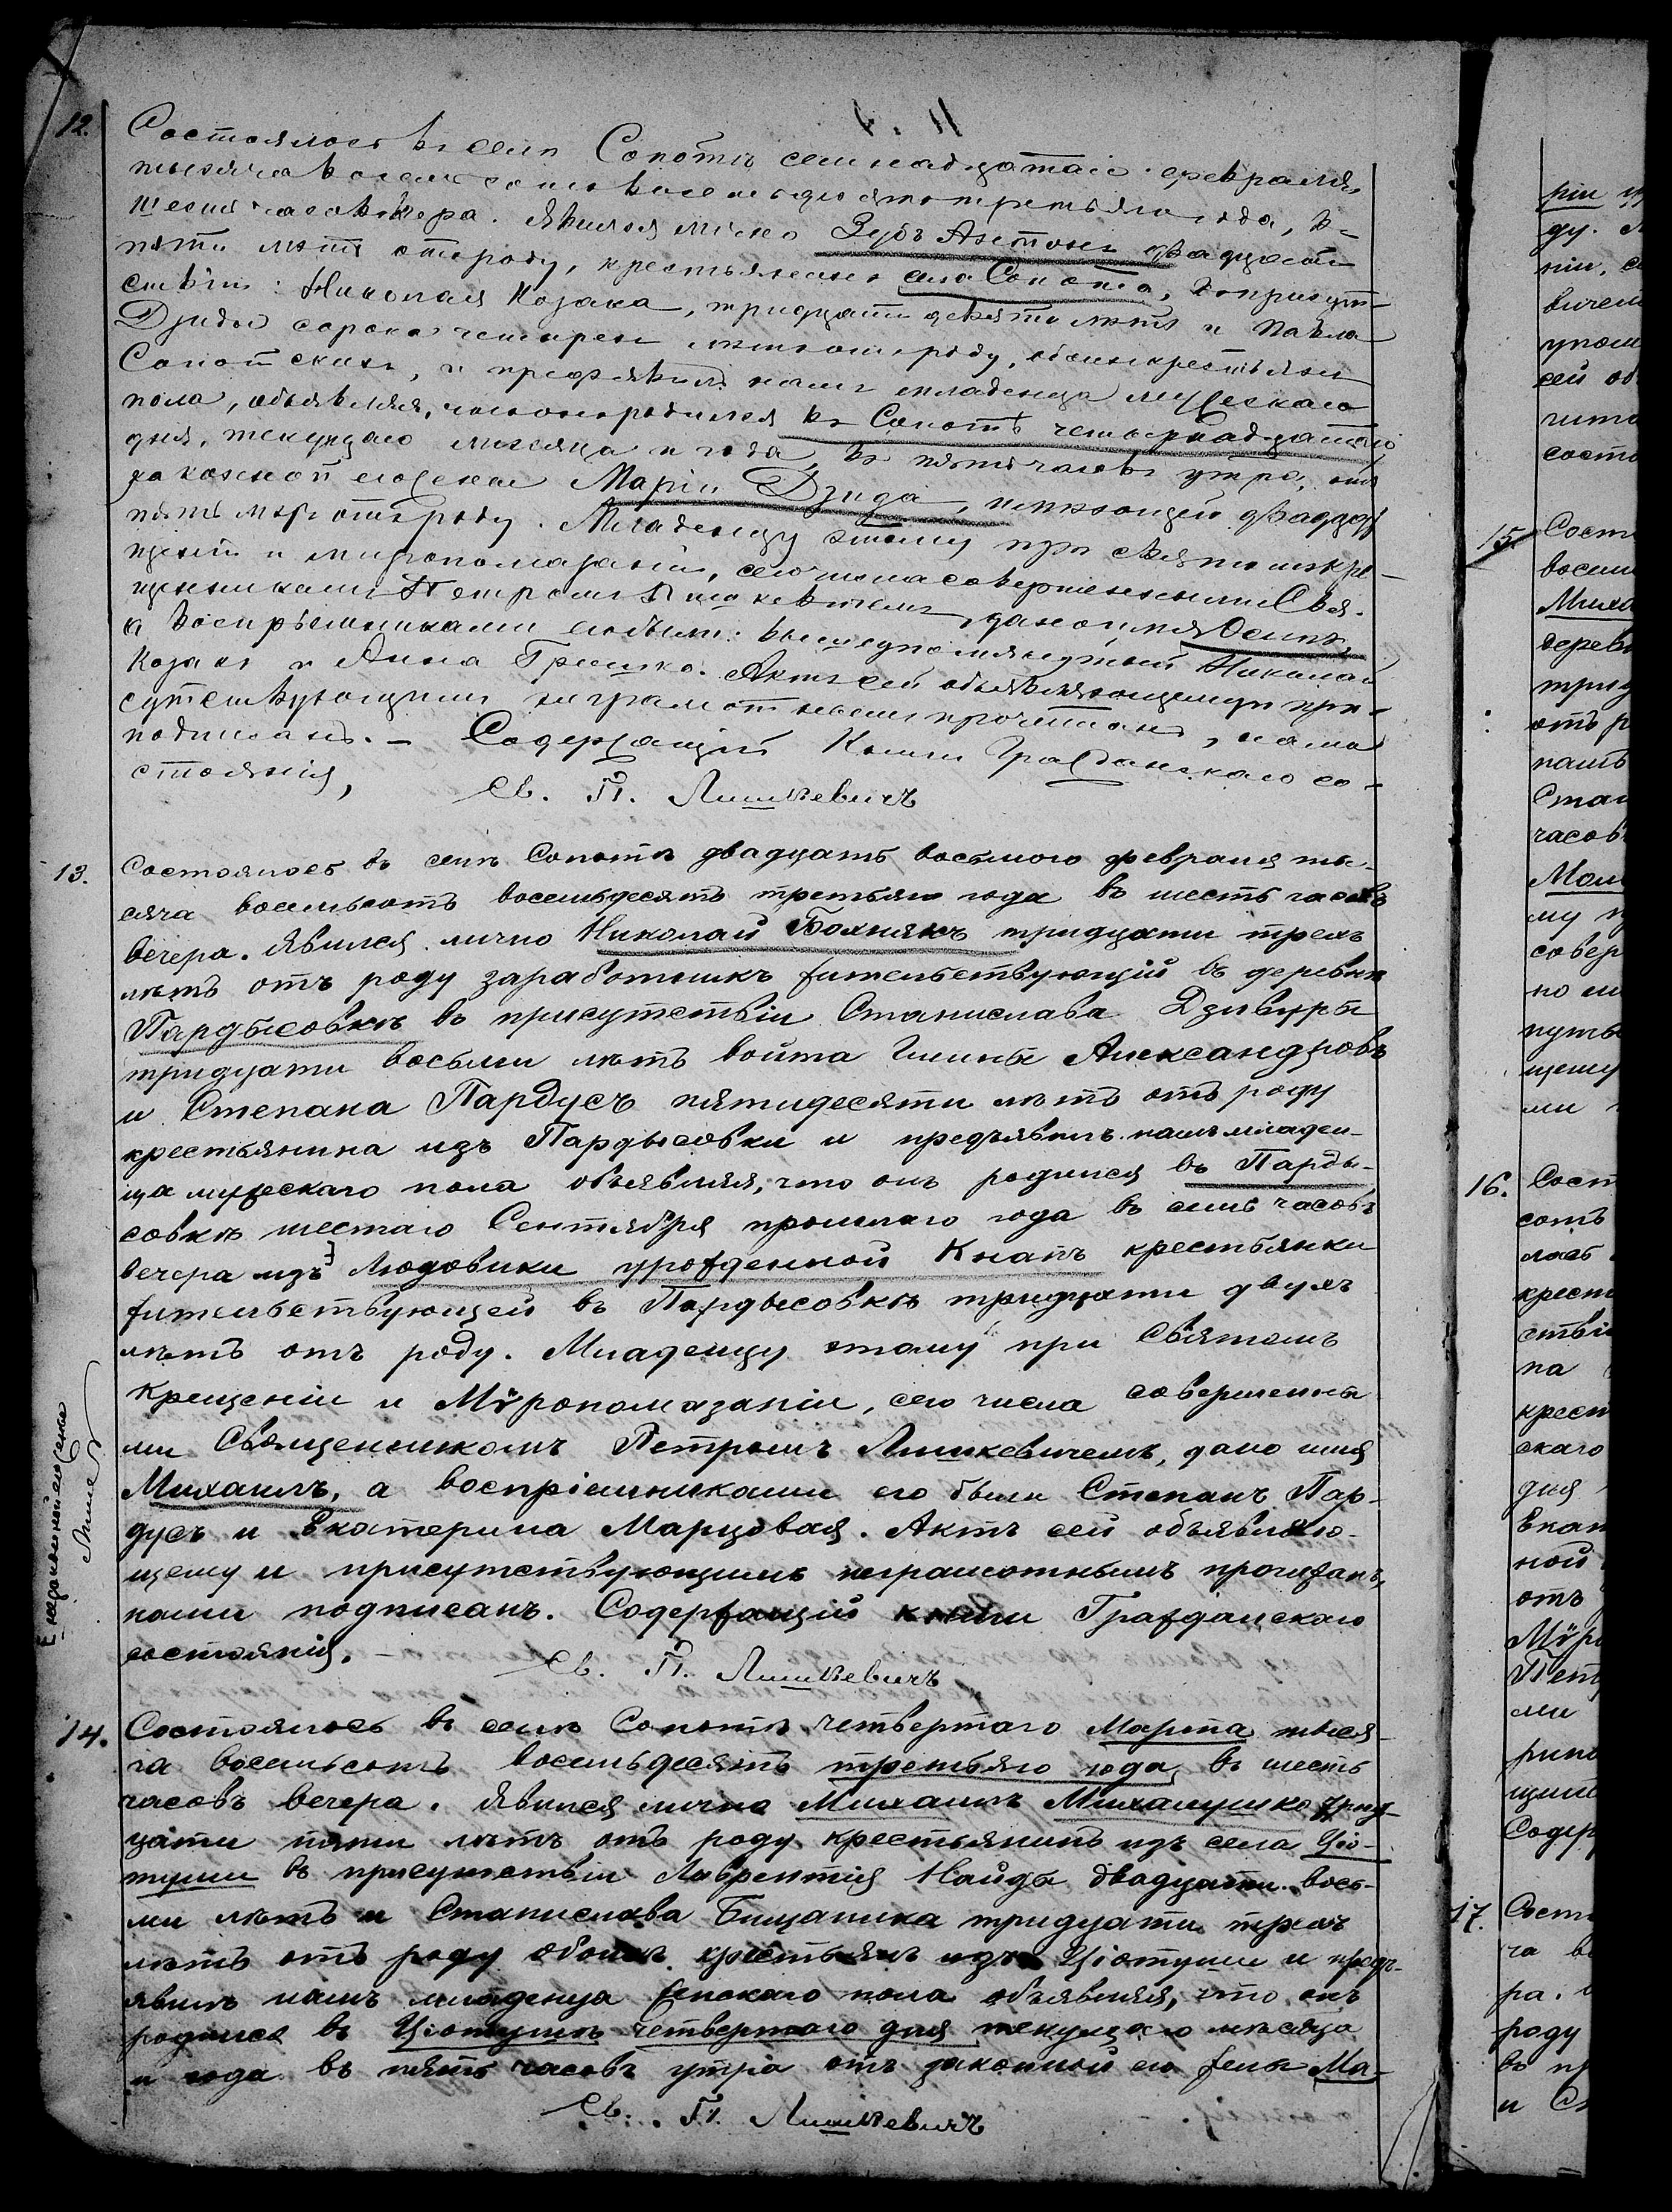 12.
Состоялось въ селѣ Сопотѣ семнадцатаго февраля
тысяча восемьсотъ восемьдесятъ третьяго года, въ
шесть часовъ вечера. Явился лично Зубъ Антонъ двадцати
пяти лѣтъ отъ роду, крестьянинъ села Сопота, въ присут-
ствіи: Николая Козака, тридцати девяти лѣтъ и Павла
Дзиды сорока четырехъ лѣтъ отъ роду, обоихъ крестьянъ
Сопотскихъ, и предъявилъ намъ младенца мужескаго
пола, объявляя, что онъ родился въ Сопотѣ четырнадцатаго
дня, текущаго мѣсяца и года, въ пять часовъ утра, отъ
законной его жены Маріи Дзида, имѣющей двадцать
пять лѣтъ отъ роду. Младенцу этому при святомъ кре-
щеніи и миропомазаніи, сего числа совершенными Свя-
щенникомъ Петромъ Лишкевичемъ, дано имя Осипъ,
а воспріемниками его были: вышеупомянутый Николай
Козакъ и Анна Гришко. Актъ сей объявляющему и при-
сутствующимъ неграмотнымъ прочитанъ, нами
подписанъ. – Содержащій Книги Гражданскаго со-
стоянія,
Св. П. Лишкевичъ
13.
Состоялось въ селѣ Сопотѣ двадцать восьмого февраля ты-
сяча восемьсотъ восемьдесятъ третьяго года въ шесть часовъ
вечера. Явился лично Николай Бахнякъ тридцати трехъ
лѣтъ отъ роду заработникъ жительствующій въ деревнѣ
Пардысовкѣ въ присутствіи Станислава Дзивуры
тридцати восьми лѣтъ войта Гмины Александровъ
и Степана Пардусъ пятидесяти лѣтъ отъ роду
крестьянина изъ Пардысовки и предъявилъ намъ младен-
ца мужескаго пола объявляя, что онъ родился въ Парды-
совкѣ шестаго Сентября прошлаго года въ семь часовъ
вечера изъ Людовики урожденной Кнапъ крестьянки
жительствующей въ Пардысовкѣ тридцати двухъ
лѣтъ отъ роду. Младенцу этому при Святомъ
Крещеніи и Мѵропомазаніи, сего числа совершенны
ми Священникомъ Петромъ Лишкевичемъ, дано имя
Михаилъ, а воспріемниками его были Степанъ Пар-
дусъ и Екатерина Марцовая. Актъ сей объявляю-
щему и присутствующимъ неграмотнымъ прочитанъ,
нами подписанъ. Содержащій книги Гражданскаго
состоянія. –
Св. П. Лишкевичъ
14.
Состоялось въ селѣ Сопотѣ четвертаго Марта тыся-
ча восемьсотъ восемьдесятъ третьяго года, въ шесть
часовъ вечера. Явился лично Михаилъ Михалушко трид-
цати пяти лѣтъ отъ роду крестьянинъ изъ села Ціо-
туши въ присутствіи Лаврентія Найда двадцати вось-
ми лѣтъ и Станислава Бицаника тридцати трехъ
лѣтъ отъ роду обоихъ крестьянъ изъ Ціотуши и предъ-
явилъ намъ младенца женскаго пола объявляя, что онъ
родился въ Ціотушѣ четвертаго дня текущаго мѣсяца
и года въ пять часовъ утра отъ законной его жены Ма-
Св. П. Лишкевичъ
15.
Сост
восем
Миха
дерев
трид
отъ р
часовъ
16.
Сост
сотъ
крест
ствіи
на
крест
скаго
дня
ной
отъ
Пет
ми
Содер
17.
Состо
ча во
ра.
роду
въ пр
и Ст